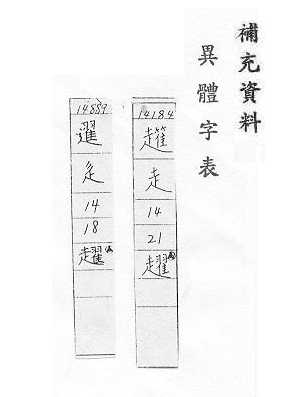 補充資料
異體字表
14184
走
14
21
趯
14889
辵
14
18
趯